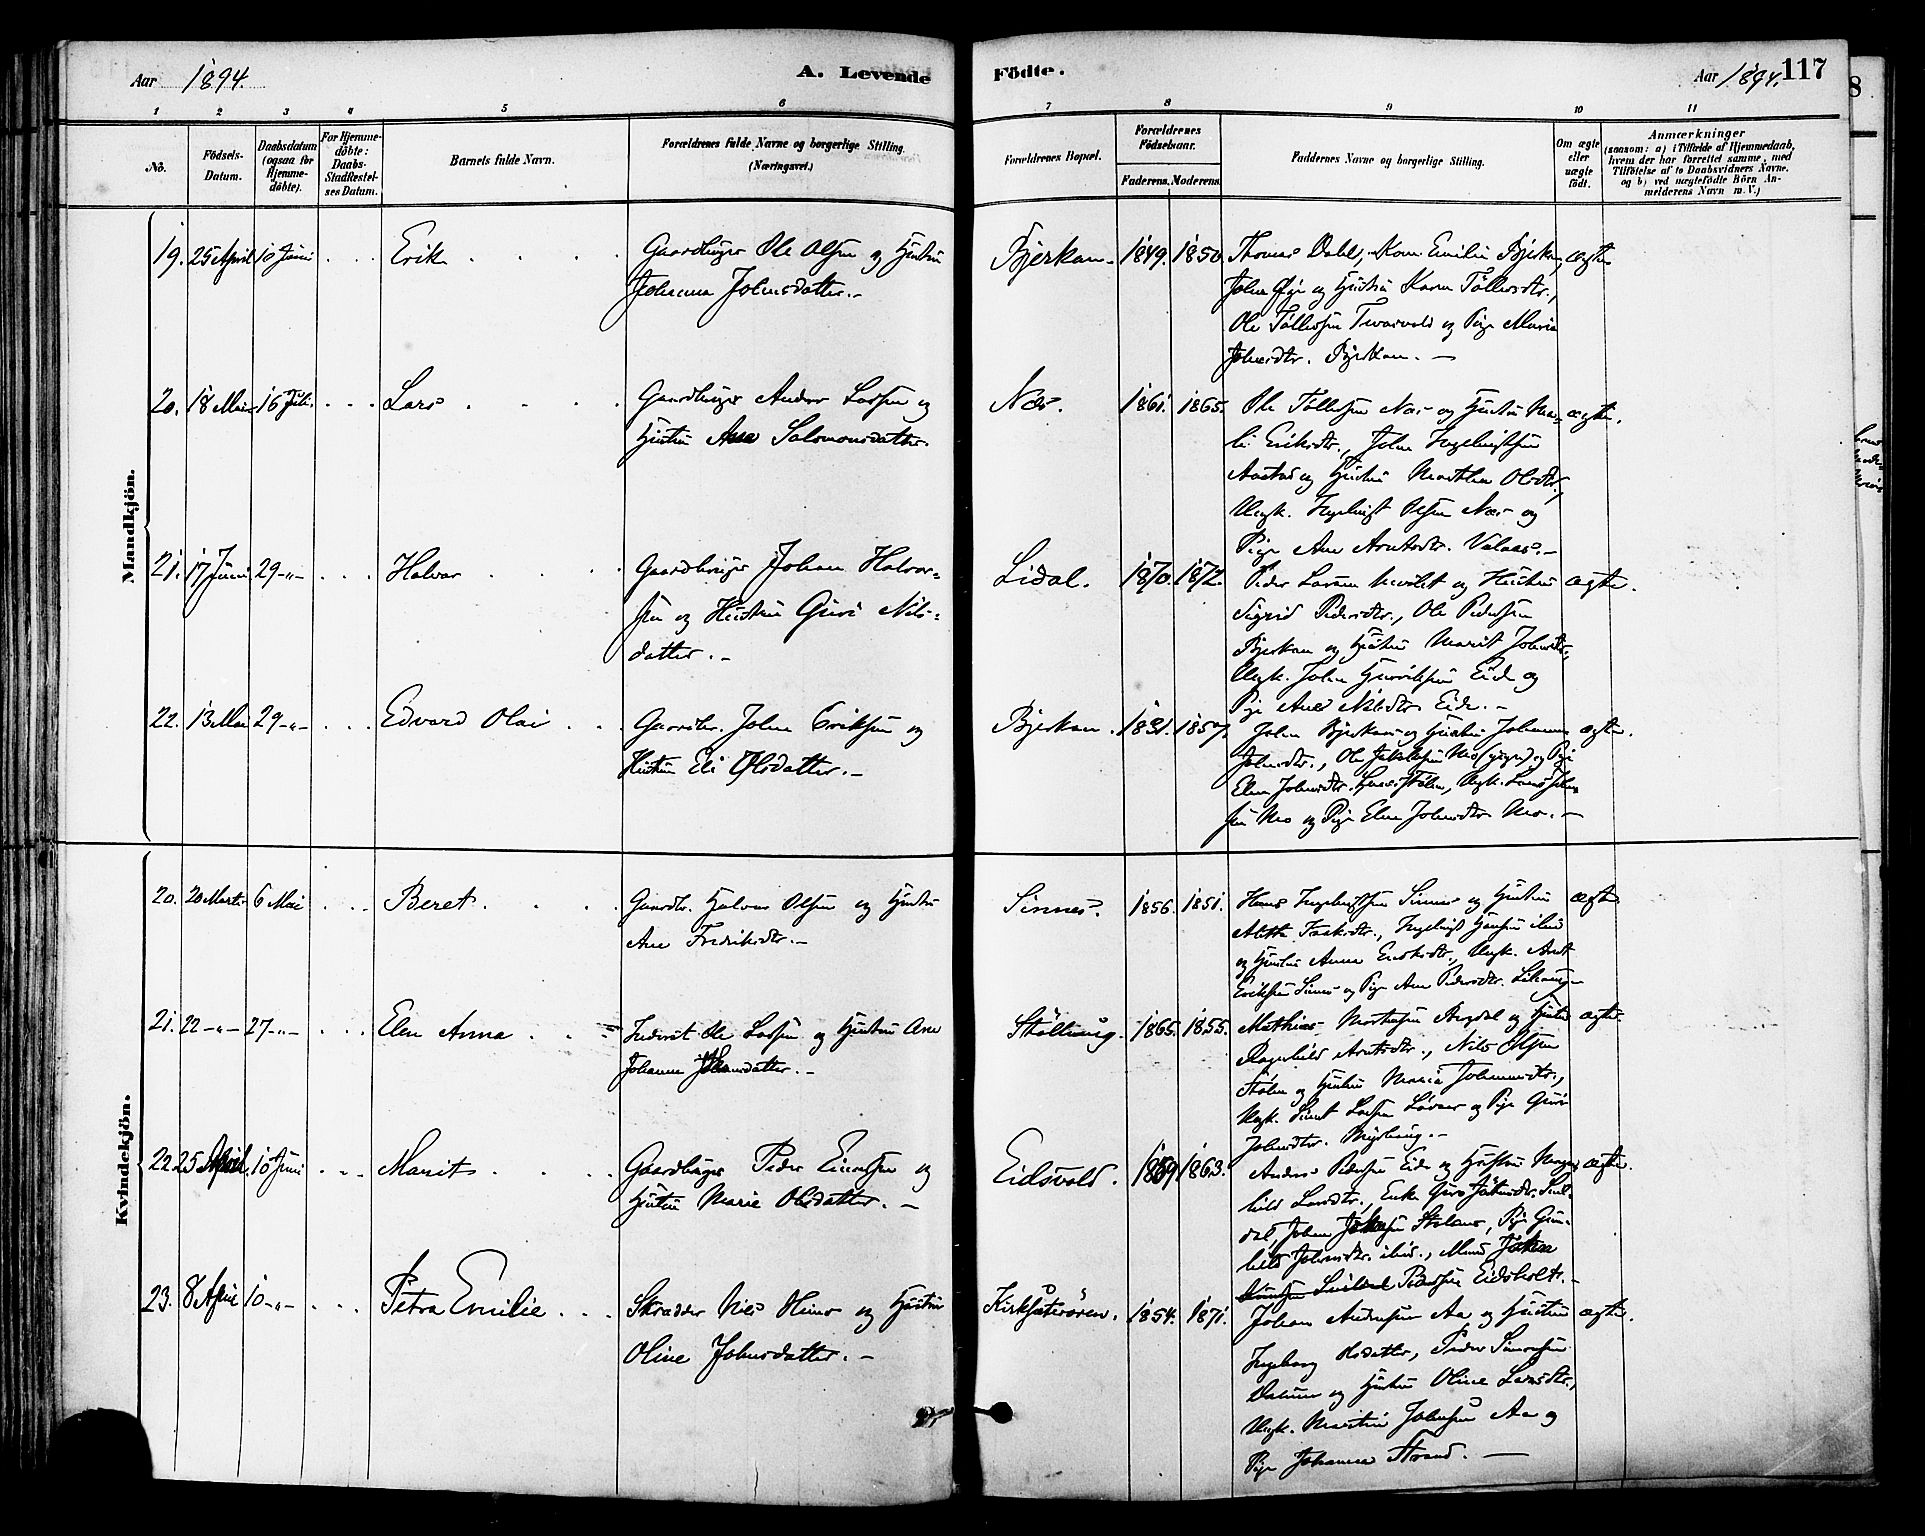 Aar 1894.
A. Levende
Födte.
Aar 1894.
117
1 2 3 4 5 6 7 8 9 10 11
No.
Födsels-
Datum.
Daabsdatum
(ogsaa for
Hjemme-
döbte).
For Hjemme-
döbte:
Daabs-
Stadfestel-
ses Datum.
Barnets fulde Navn.
Forældrenes fulde Navne og borgerlige Stilling.
(Næringsvei.)
Forældrenes Bopæl.
Forældrenes
Födselsaar.
Faderens. Moderens.
Faddernes Navne og borgerlige Stilling.
Om ægte
eller
uægte
födt.
Anmærkninger
(saasom: a) i Tilfælde af Hjemmedaab,
hvem der har forrettet samme, med
Tilföielse af to Daabsvidners Navne.
og b) ved uægtefödte Börn An-
melderens Navn m. V.)
Mandkjön.
19. 25 April 10 Juni Erik
Gaardbruger Ole Olsen og Hustru
Johanna Johnsdatter.
Bjerkan 1849. 1850.
Thomas Dahl, Kone Emilie Bjerkan, ægte
John Øye og Hustru Karen Tøllersdtr.,
Ole Tøllefsen og Pige Maria
Johnsdtr. Bjerkan.
20. 18 Mai 16 Juli Lars
Gaardbruger Anders Larsen og
Hustru Ane Salomonsdatter.
Næs. 1861. 1865.
Ole Tøllefsen Næs og Hustru Ma- ægte.
li Eriksdtr., John Ingebrigtsen
Aastad og Hustru Marthe Olsdtr.,
Ungk. Ingebrigt Olsen Næs og
Pige Ane Arntsdtr. Valaas.
21. 17 Juni 29-"- Halvar
Gaardbruger Johan Halvar-
sen og Hustru Guri Nils-
datter.
Lidal. 1870. 1872.
Peder Larsen og Hustru ægte.
Sigrid Pedersdtr., Ole Pedersen
Bjerkan og Hustru Marit Johnsdtr.,
Ungk. John Henriksen Eide og
Pige Ane Nilsdtr. Eide.
22. 13 Mai 29-"- Edvard Olai
Gaardbr. John Eriksen og
Hustru Eli Olsdatter.
Bjerkan. 1831. 1857.
John Bjerkan og Hustru Johanna ægte.
Johnsdtr., Ole Mo og Pige
Elen Johnsdtr. Ungk. Lars John-
sen Mo og Pige Elen Johnsdtr. Mo.
Kvindekjön.
20. 20 Marts 6 Mai Beret
Gaardbr. Halvar Olsen og Hustru
Ane Fredriksdtr.
Sinnes. 1856. 1851.
Hans Ingebrigtsen Sinnes og Hustru ægte
Ingebrigt Hansen ibid
og Hustru Anna Ungk. Arnt
Eriksen Sinnes og Pige Ane Pedersdtr.
21. 22-"- 27-"- Elen Anna
Inderst Ole Larsen og Hustru Ane
Johanna Johansdatter.
1865. 1855.
Mathias Mortensen og Hustru ægte.
Ragnhild Arntsdtr., Nils Olsen
Stølen og Hustru Maria Johannesdtr.,
Ungk. Larsen og Pige Guri
Johnsdtr.
22. 25 April 10 Juni Marit
Gaardbruger Peder Einersen og
Hustru Marie Olsdatter.
Eidsvold. 1859 1863.
Anders Pedersen Eide og Hustru Ragn- ægte.
hild Larsdtr., Enke Guro Johnsdtr.
dal, John Pige Gun-
hild Johnsdtr. ibid.,
23. 8 April 10-"- Petra Emilie
Skrædder Nils og Hustru
Oline Johnsdatter.
Kirksæterören. 1854. 1871.
Johan Andersen Aa og Hustru ægte.
Ingeborg Olsdatter, Peder Simonsen
og Hustru Oline Larsdtr.,
Ungk. Martin Johnsen Aa og
Pige Johanna Strand.